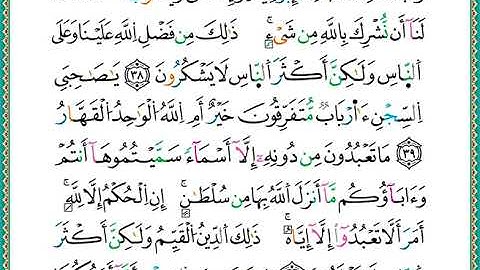 لَنَآ أَن نُّشْرِكَ بِٱللَّهِ مِن شَىْءٍ ۚ ذَٰلِكَ مِن فَضْلِ ٱللَّهِ عَلَيْنَا وَعَلَى
ٱلنَّاسِ وَلَٰكِنَّ أَكْثَرَ ٱلنَّاسِ لَا يَشْكُرُونَ ٣٨ يَٰصَىٰحِبَىِ
ٱلسِّجْنِ ءَأَرْبَابٌ مُّتَفَرِّقُونَ خَيْرٌ أَمِ ٱللَّهُ ٱلْوَٰحِدُ ٱلْقَهَّارُ
٣٩ مَا تَعْبُدُونَ مِن دُونِهِۦٓ إِلَّآ أَسْمَآءً سَمَّيْتُمُوهَآ أَنتُمْ
وَءَابَآؤُكُم مَّآ أَنزَلَ ٱللَّهُ بِهَا مِن سُلْطَٰنٍ ۚ إِنِ ٱلْحُكْمُ إِلَّا لِلَّهِ ۚ
أَمَرَ أَلَّا تَعْبُدُوٓا۟ إِلَّآ إِيَّاهُ ۚ ذَٰلِكَ ٱلدِّينُ ٱلْقَيِّمُ وَلَٰكِنَّ أَكْثَرَ